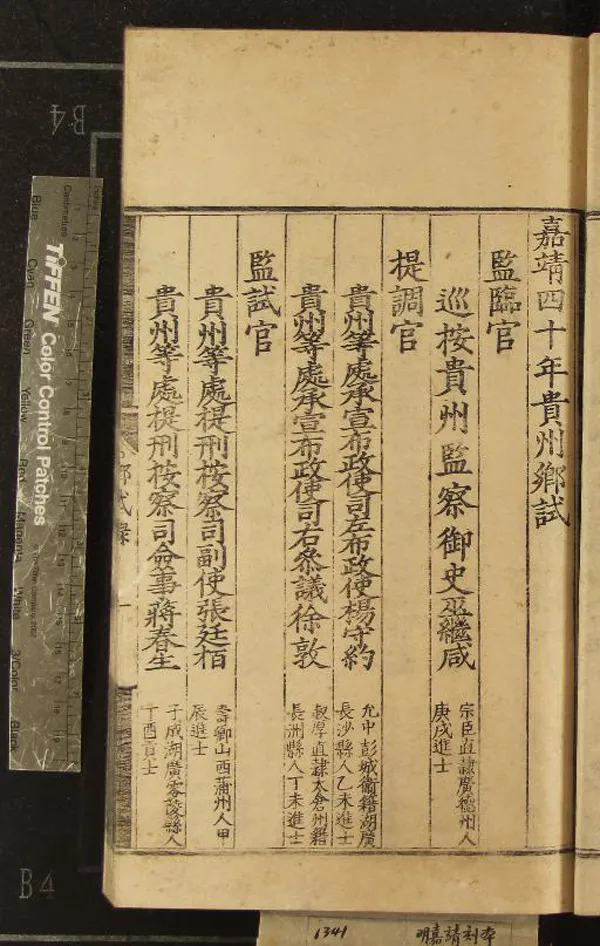 嘉靖四十年貴州鄉試
監臨官
巡按貴州監察御史巫繼咸
宗臣直隷廣德州人
庚戌進士
提調官
貴州等處承宣布政使司左布政使楊守約
允中彭城衞籍湖廣
長沙縣人乙未進士
貴州等處承宣布政使司右叅議徐敦
叔厚直隷太倉州籍
長洲縣人丁未進士
監試官
貴州等處提刑按察司副使張廷柏
壽卿山西蒲州人甲
辰進士
貴州等處提刑按察司僉事蔣春生
子成湖廣零陵縣人
丁酉貢士
鄉試錄
一
B4
B4
TIFFEN Color Control Patches
Centimetres
Blue
Cyan
Green
Yellow
Red
Magenta
White
3/Color
Black
1341
明嘉靖刻本